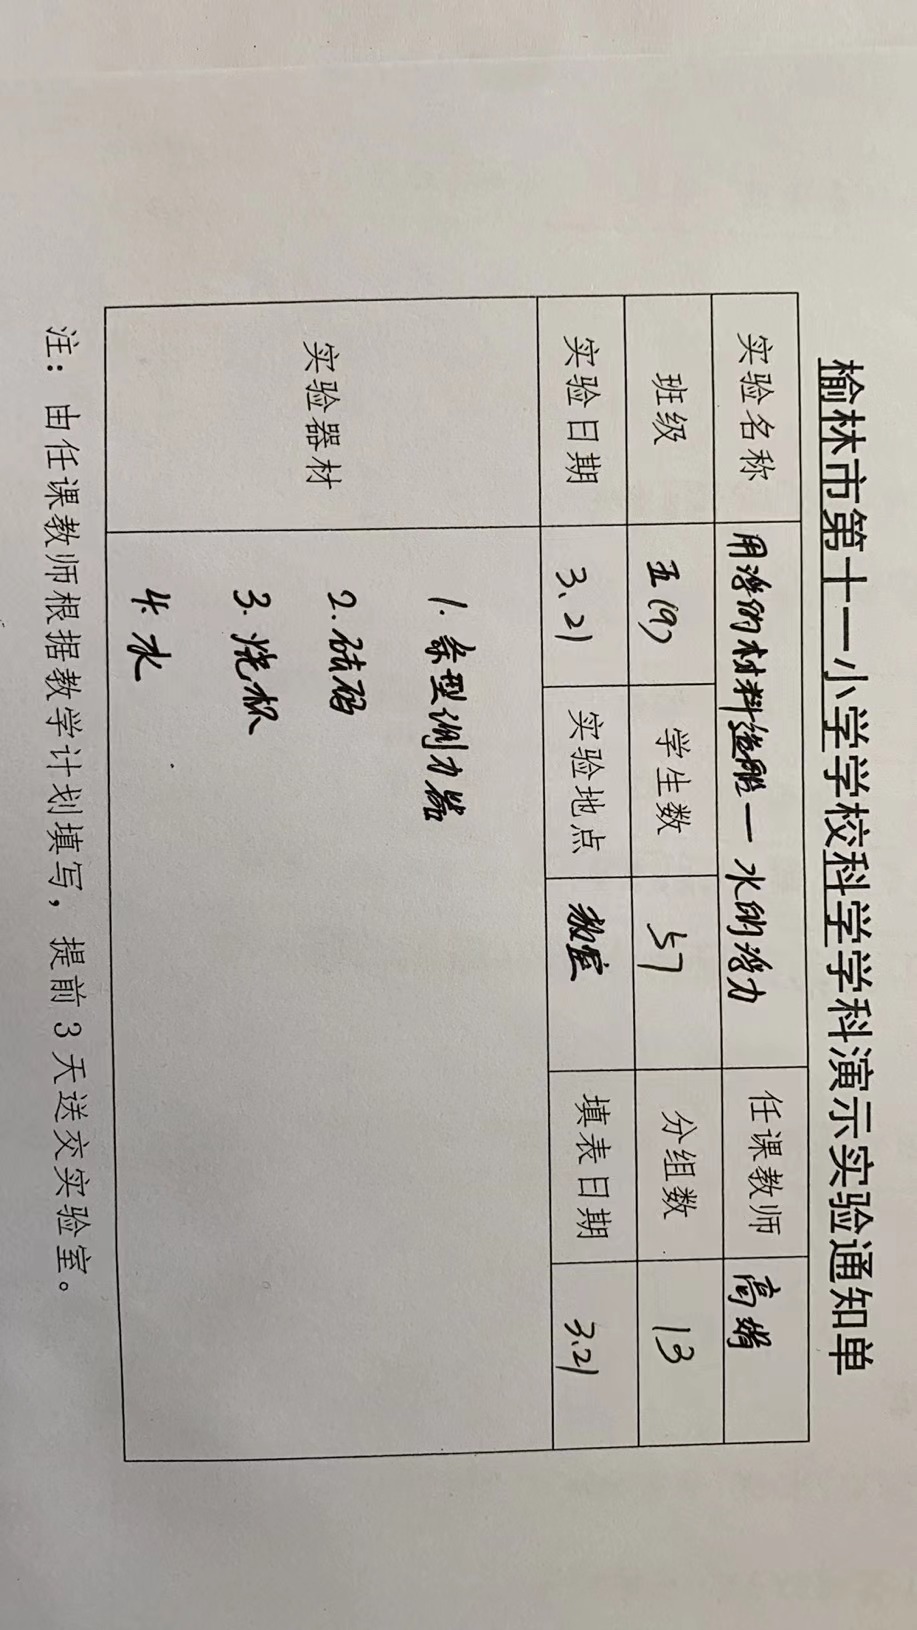 榆林市第十一小学学校科学学科演示实验通知单
实验名称 用浮的材料造船—水的浮力 任课教师 高娟
班级 五(9) 学生数 57 分组数 13
实验日期 3.21 实验地点 教室 填表日期 3.21
实验器材
1. 条型测力器
2. 砝码
3. 烧杯
4. 水
注：由任课教师根据教学计划填写，提前3天送交实验室。